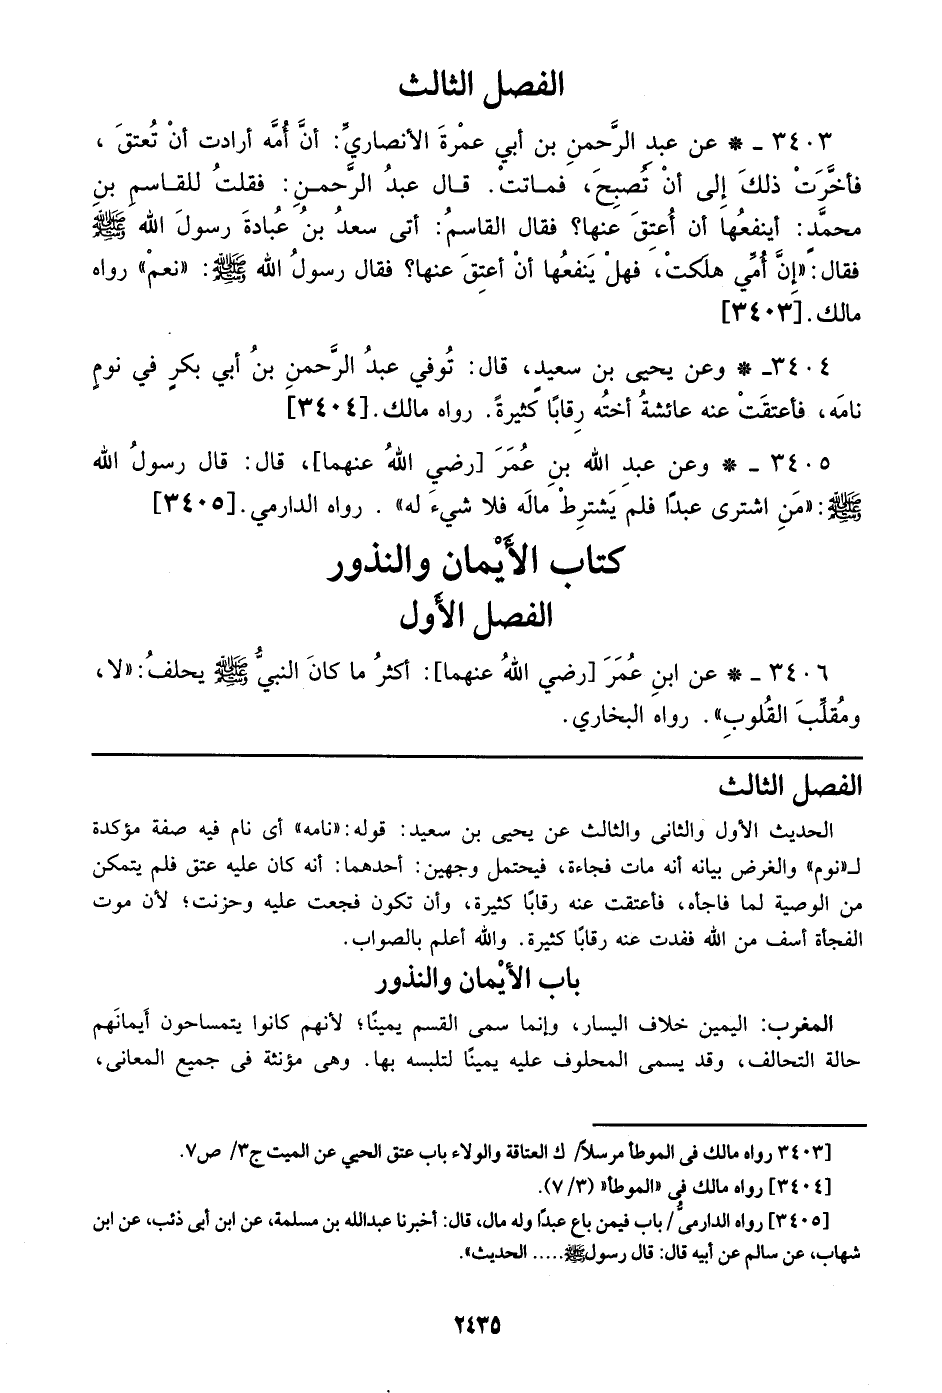 الفصل الثالث
٣٤٠٣ ـ * عن عبدِ الرَّحمنِ بن أبي عمْرةَ الأنصاريِّ: أنَّ أُمَّه أرادت أنْ تُعتقَ ،
فأخَّرَتْ ذلكَ إلى أنْ تُصبحَ، فمـاتتْ. قـال عبدُ الرَّحمـنِ: فقلتُ للقـاسمِ بنِ
محمَّدٍ: أينفعُها أن أُعتِقَ عنها؟ فقال القاسمُ: أتى سعدُ بنُ عُبادةَ رسولَ الله ﷺ
فقال: «إنَّ أُمِّي هلَكتْ، فهلْ يَنفعُها أنْ أعتِقَ عنها؟ فقال رسولُ الله ﷺ: «نعمْ» رواه
مالك. [٣٤٠٣]
٣٤٠٤ـ * وعن يحيى بن سعيدٍ، قال: تُوفي عبدُ الرَّحمنِ بنُ أبي بكرٍ في نومٍ
نامَه، فأعتقَتْ عنه عائشةُ أختُه رِقابًا كثيرةً. رواه مالك. [٣٤٠٤]
٣٤٠٥ ـ * وعن عبدِ الله بنِ عُمَرَ [رضي اللهُ عنهما]، قال: قال رسولُ الله
ﷺ: «مَنِ اشترى عبدًا فلم يَشترِطْ مالَه فلا شيءَ له» . رواه الدارمي. [٣٤٠٥]
كتاب الأَيْمان والنذور
الفصل الأول
٣٤٠٦ ـ * عن ابنِ عُمَرَ [رضي اللهُ عنهما]: أكثرُ ما كانَ النبيُّ ﷺ يحلفُ: «لا،
ومُقلِّبَ القُلوبِ». رواه البخاري.
الفصل الثالث
الحديث الأول والثانى والثالث عن يحيى بن سعيد: قوله: «نامه» أى نام فيه صفة مؤكدة
لـ«نوم» والغرض بيانه أنه مات فجاءة، فيحتمل وجهين: أحدهما: أنه كان عليه عتق فلم يتمكن
من الوصية لما فاجأه، فأعتقت عنه رقابًا كثيرة، وأن تكون فجعت عليه وحزنت؛ لأن موت
الفجأة أسف من الله ففدت عنه رقابًا كثيرة. والله أعلم بالصواب.
باب الأيْمان والنذور
المغرب: اليمين خلاف اليسار، وإنما سمى القسم يمينًا؛ لأنهم كانوا يتمساحون أيمانَهم
حالة التحالف، وقد يسمى المحلوف عليه يمينًا لتلبسه بها. وهى مؤنثة فى جميع المعانى،
[٣٤٠٣ رواه مالك فى الموطأ مرسلاً/ ك العتاقة والولاء باب عتق الحيي عن الميت ج٣/ ص٧.
[٣٤٠٤] رواه مالك فى «الموطأ» (٣/ ٧).
[٣٤٠٥] رواه الدارمىُّ/ باب فيمن باع عبدًا وله مال، قال: أخبرنا عبدالله بن مسلمة، عن ابن أبى ذئب، عن ابن
شهاب، عن سالم عن أبيه قال: قال رسولﷺ..... الحديث».
٢٤٣٥